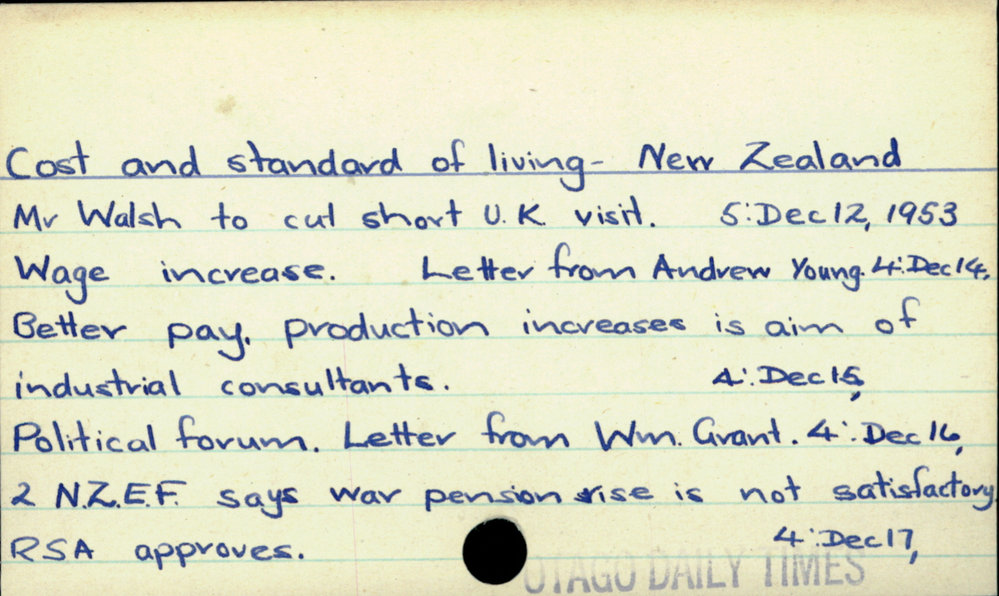 Cost and standard of living - New Zealand
Mr Walsh to cut short U.K. visit. 5:Dec 12, 1953
Wage increase. Letter from Andrew Young. 4:Dec 14,
Better pay, production increases is aim of
industrial consultants. 4:Dec 15,
Political forum. Letter from Wm. Grant. 4:Dec 16,
2 N.Z.E.F. says war pension rise is not satisfactory
RSA approves. 4:Dec 17,
OTAGO DAILY TIMES